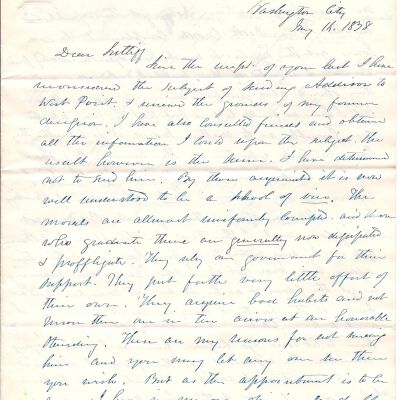 Washington City
Jany 16. 1838
Dear Sutliff
Since the receipt of your last I have
reconsidered the subject of sending Addison to
West Point. & reviewed the grounds of my former
decision. I have also consulted friends and obtained
all the information I could upon the subject. The
result however is the same. I have determined
not to send him. By those acquainted it is now
well understood to be a school of vice. The
morals are allmost uniformly corrupted. and those
who graduate there are generally now dissipated
& proffligate. They rely on government for their
support. They put forth very little effort of
their own. They acquire bad habits and not
more than one in ten arrives at an honorable
standing. These are my reasons for not sending
him and you may let any one see them
you wish. But as the appointment is to be